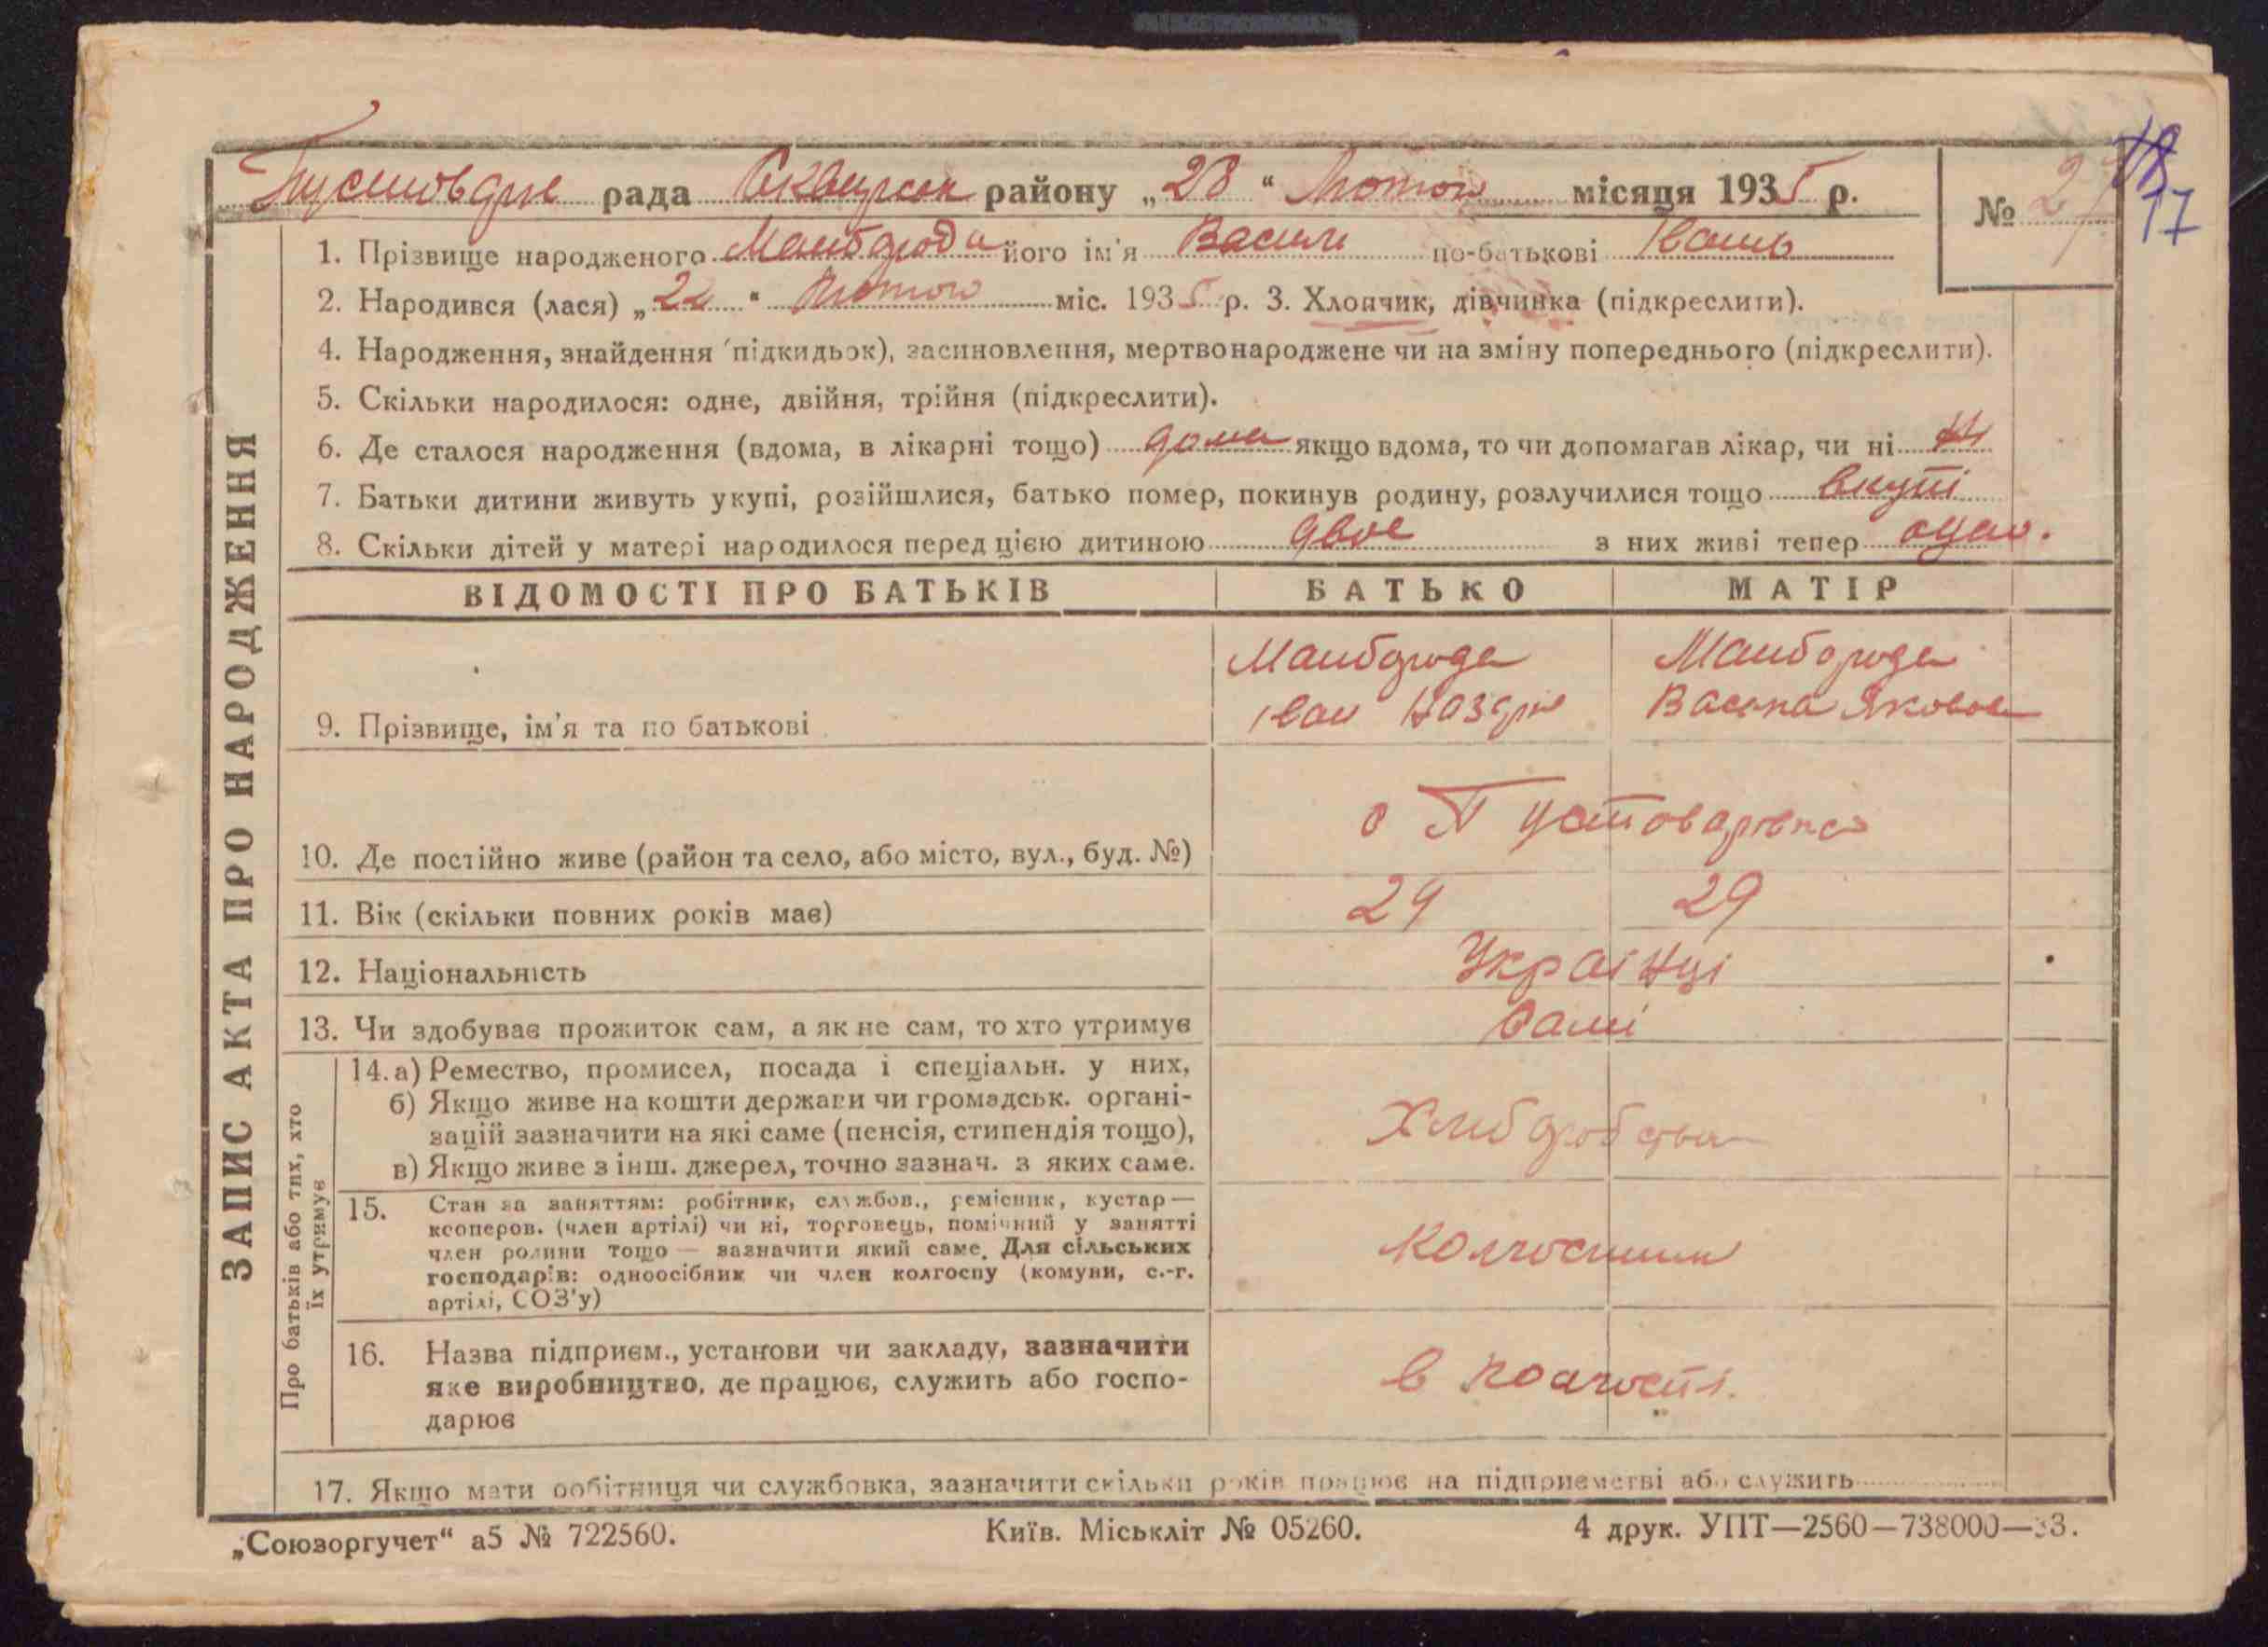 Пустовар рада Сквирськ району „28“ Лютого місяця 1935 р.
№ 27
17
1. Прізвище народженого Майборода його ім'я Василь по-батькові Івань
2. Народився (лася) „22“ Лютого міс. 1935 р. 3. Хлопчик, дівчинка (підкреслити).
4. Народження, знайдення (підкидьок), засиновлення, мертвонароджене чи на зміну попереднього (підкреслити).
5. Скільки народилося: одне, двійня, трійня (підкреслити).
6. Де сталося народження (вдома, в лікарні тощо) дома якщо вдома, то чи допомагав лікар, чи ні ні
7. Батьки дитини живуть укупі, розійшлися, батько помер, покинув родину, розлучилися тощо вкупі
8. Скільки дітей у матері народилося перед цією дитиною двоє з них живі тепер одно.
ЗАПИС АКТА ПРО НАРОДЖЕННЯ
ВІДОМОСТІ ПРО БАТЬКІВ БАТЬКО МАТІР
Майборода Майборода
9. Прізвище, ім'я та по батькові Іван Назар Яковов
10. Де постійно живе (район та село, або місто, вул., буд. №) с Пустоварівка
11. Вік (скільки повних років має) 29 29
12. Національність Українці
13. Чи здобуває прожиток сам, а як не сам, то хто утримує Самі
Про батьків або тих, хто їх утримує
14. а) Ремество, промисел, посада і спеціальн. у них,
б) Якщо живе на кошти держави чи громадськ. органі-
зацій зазначити на які саме (пенсія, стипендія тощо), Хліборобство
в) Якщо живе з інш. джерел, точно зазнач. з яких саме.
15. Стан за заняттям: робітник, службов., ремісник, кустар —
кооперов. (член артілі) чи ні, торговець, помічний у занятті
член родини тощо — зазначити який саме. Для сільських Колгоспники
господарів: одноосібник чи член колгоспу (комуни, с.-г.
артілі, СОЗ'у)
16. Назва підприєм., установи чи закладу, зазначити
яке виробництво, де працює, служить або госпо- в колгоспі.
дарює
17. Якщо мати робітниця чи службовка, зазначити скільки років працює на підприємстві або служить
„Союзоргучет“ а5 № 722560. Київ. Міськліт № 05260. 4 друк. УПТ—2560—738000—33.